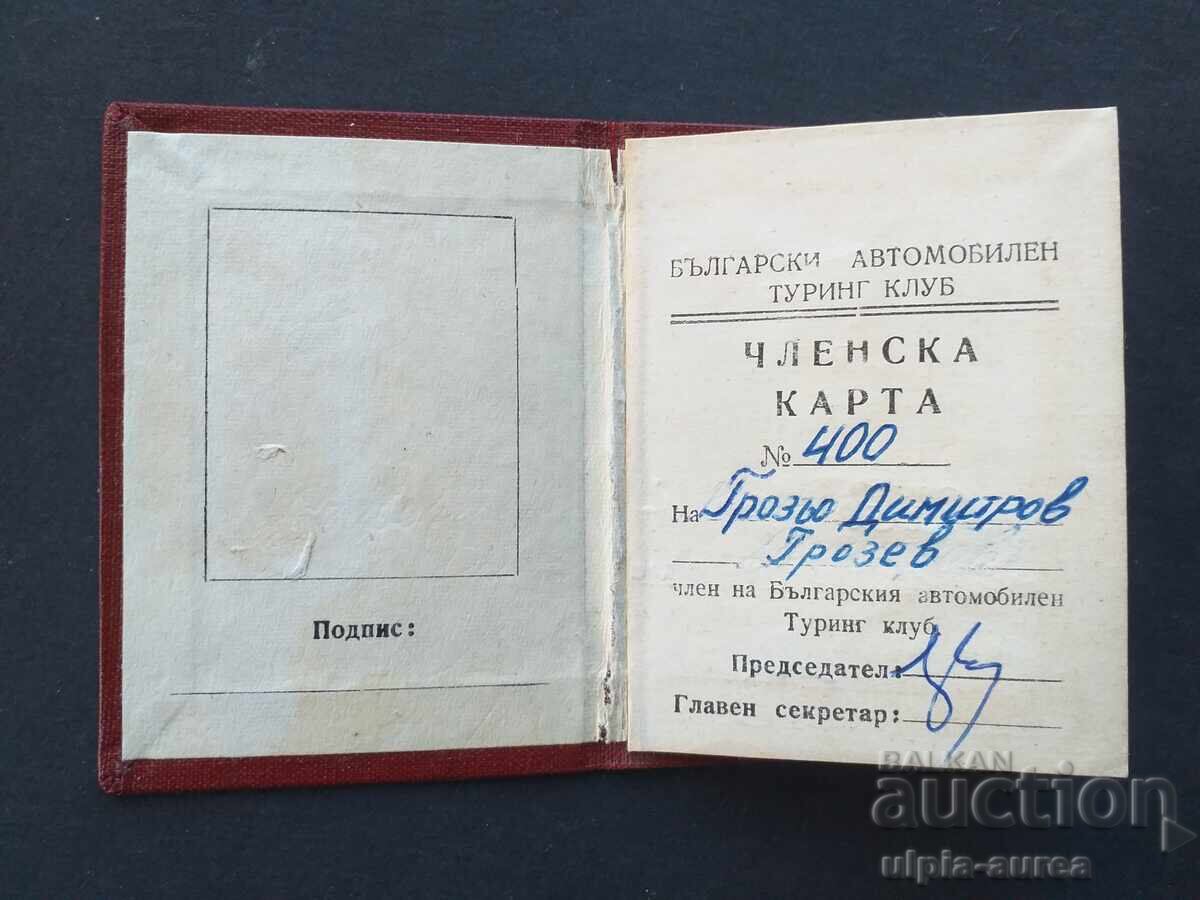 Подпис:
БЪЛГАРСКИ АВТОМОБИЛЕН
ТУРИНГ КЛУБ
ЧЛЕНСКА
КАРТА
№ 400
На Грозьо Димитров
Грозев
член на Българския автомобилен
Туринг клуб
Председател:
Главен секретар:
BALKAN
auction
ulpia-aurea